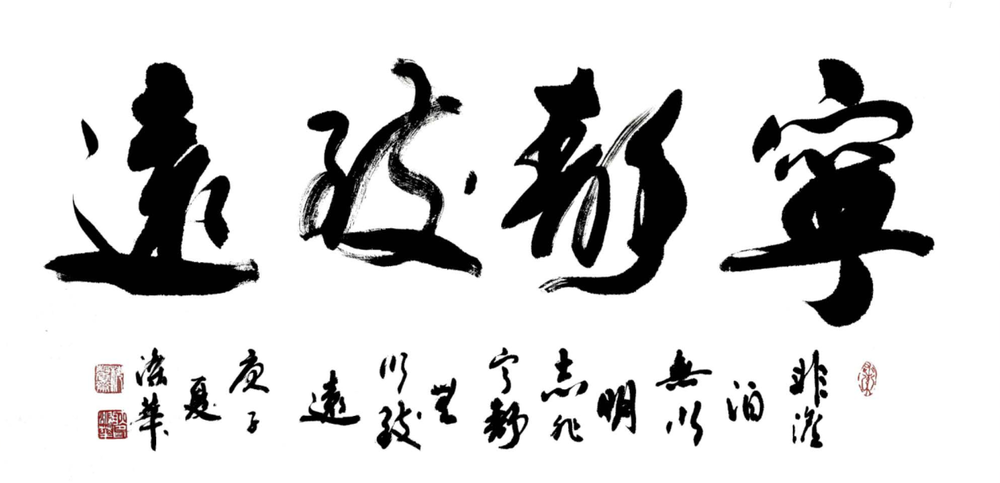 寧靜致遠
非澹泊無以明志非寧靜無以致遠
庚子夏
華